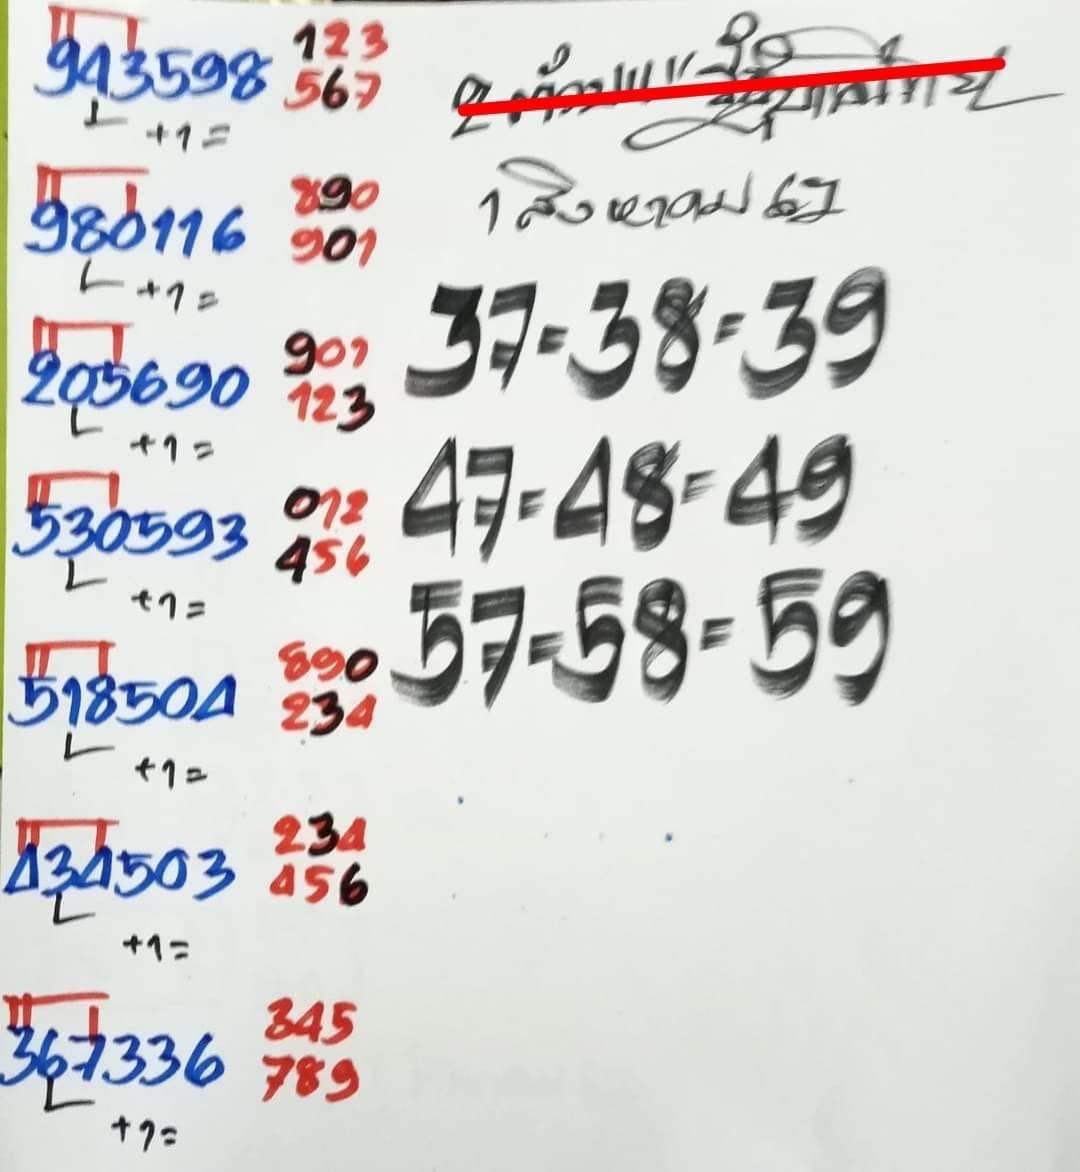 943598 123
567
+1=
980116 890
901
+1=
205690 901
123
+1=
530593 012
456
+1=
518504 890
234
+1=
434503 234
456
+1=
367336 345
789
+1=
1 สิงหาคม 67
37=38=39
47=48=49
57=58=59